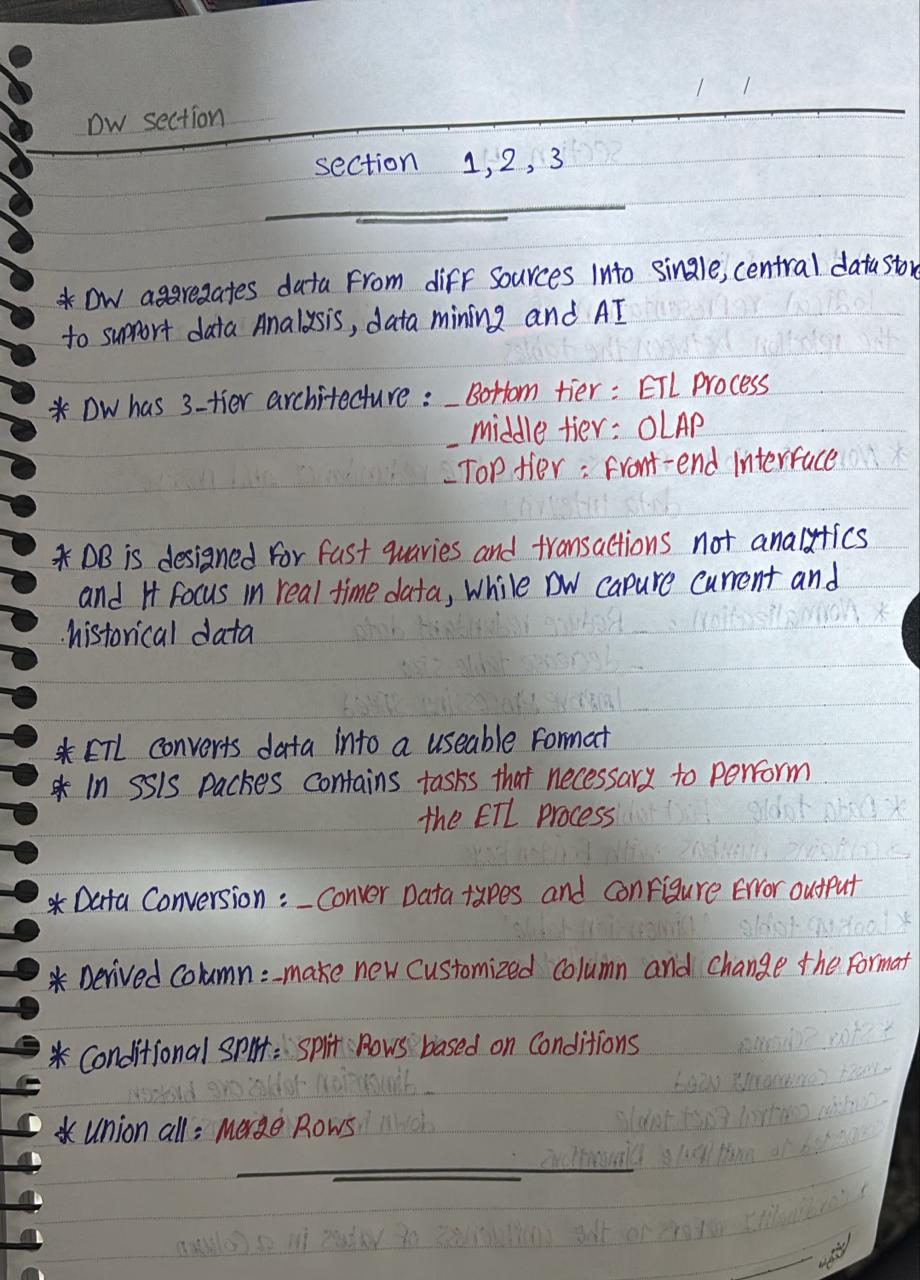 DW section
/ /
section 1,2,3
* DW aggregates data From diff sources Into single, central data store
to support data Analysis, data mining and AI
* DW has 3-tier architecture : - Bottom tier : ETL Process
- middle tier : OLAP
- Top tier : front-end Interface
* DB is designed For fast quaries and transactions not analytics
and It Focus in real time data, while DW capure current and
historical data
* ETL converts data into a useable Format
* In SSIS Packes contains tasks that necessary to perform
the ETL Process
* Data Conversion : - Conver Data types and configure Error output
* Derived Column : - make new customized column and change the format
* Conditional Split : split Rows based on Conditions
* Union all : Merge Rows